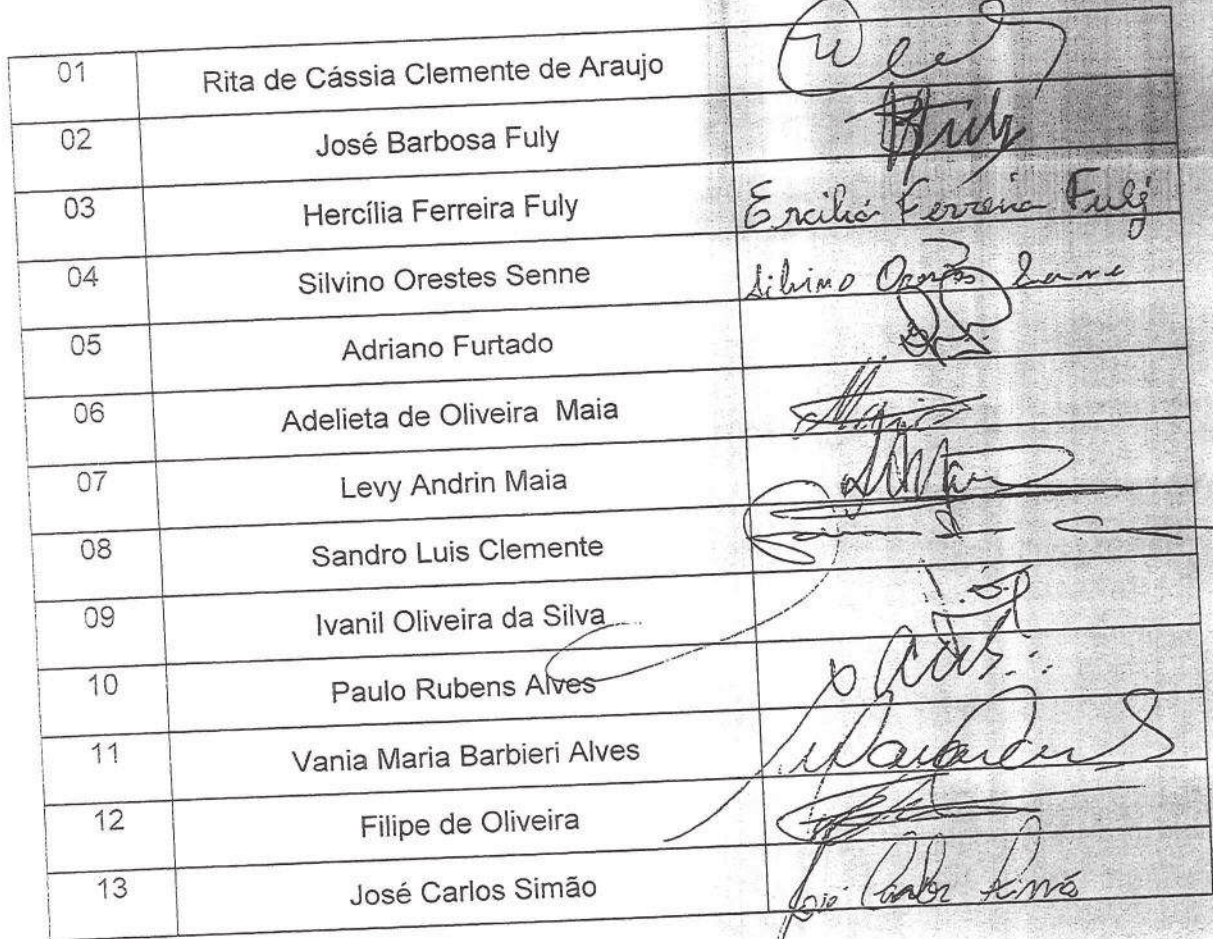 01 Rita de Cássia Clemente de Araujo
02 José Barbosa Fuly
03 Hercília Ferreira Fuly Ercilia Ferreira Fuly
04 Silvino Orestes Senne Silvino
05 Adriano Furtado
06 Adelieta de Oliveira Maia
07 Levy Andrin Maia
08 Sandro Luis Clemente
09 Ivanil Oliveira da Silva
10 Paulo Rubens Alves
11 Vania Maria Barbieri Alves
12 Filipe de Oliveira
13 José Carlos Simão José Carlos Simão